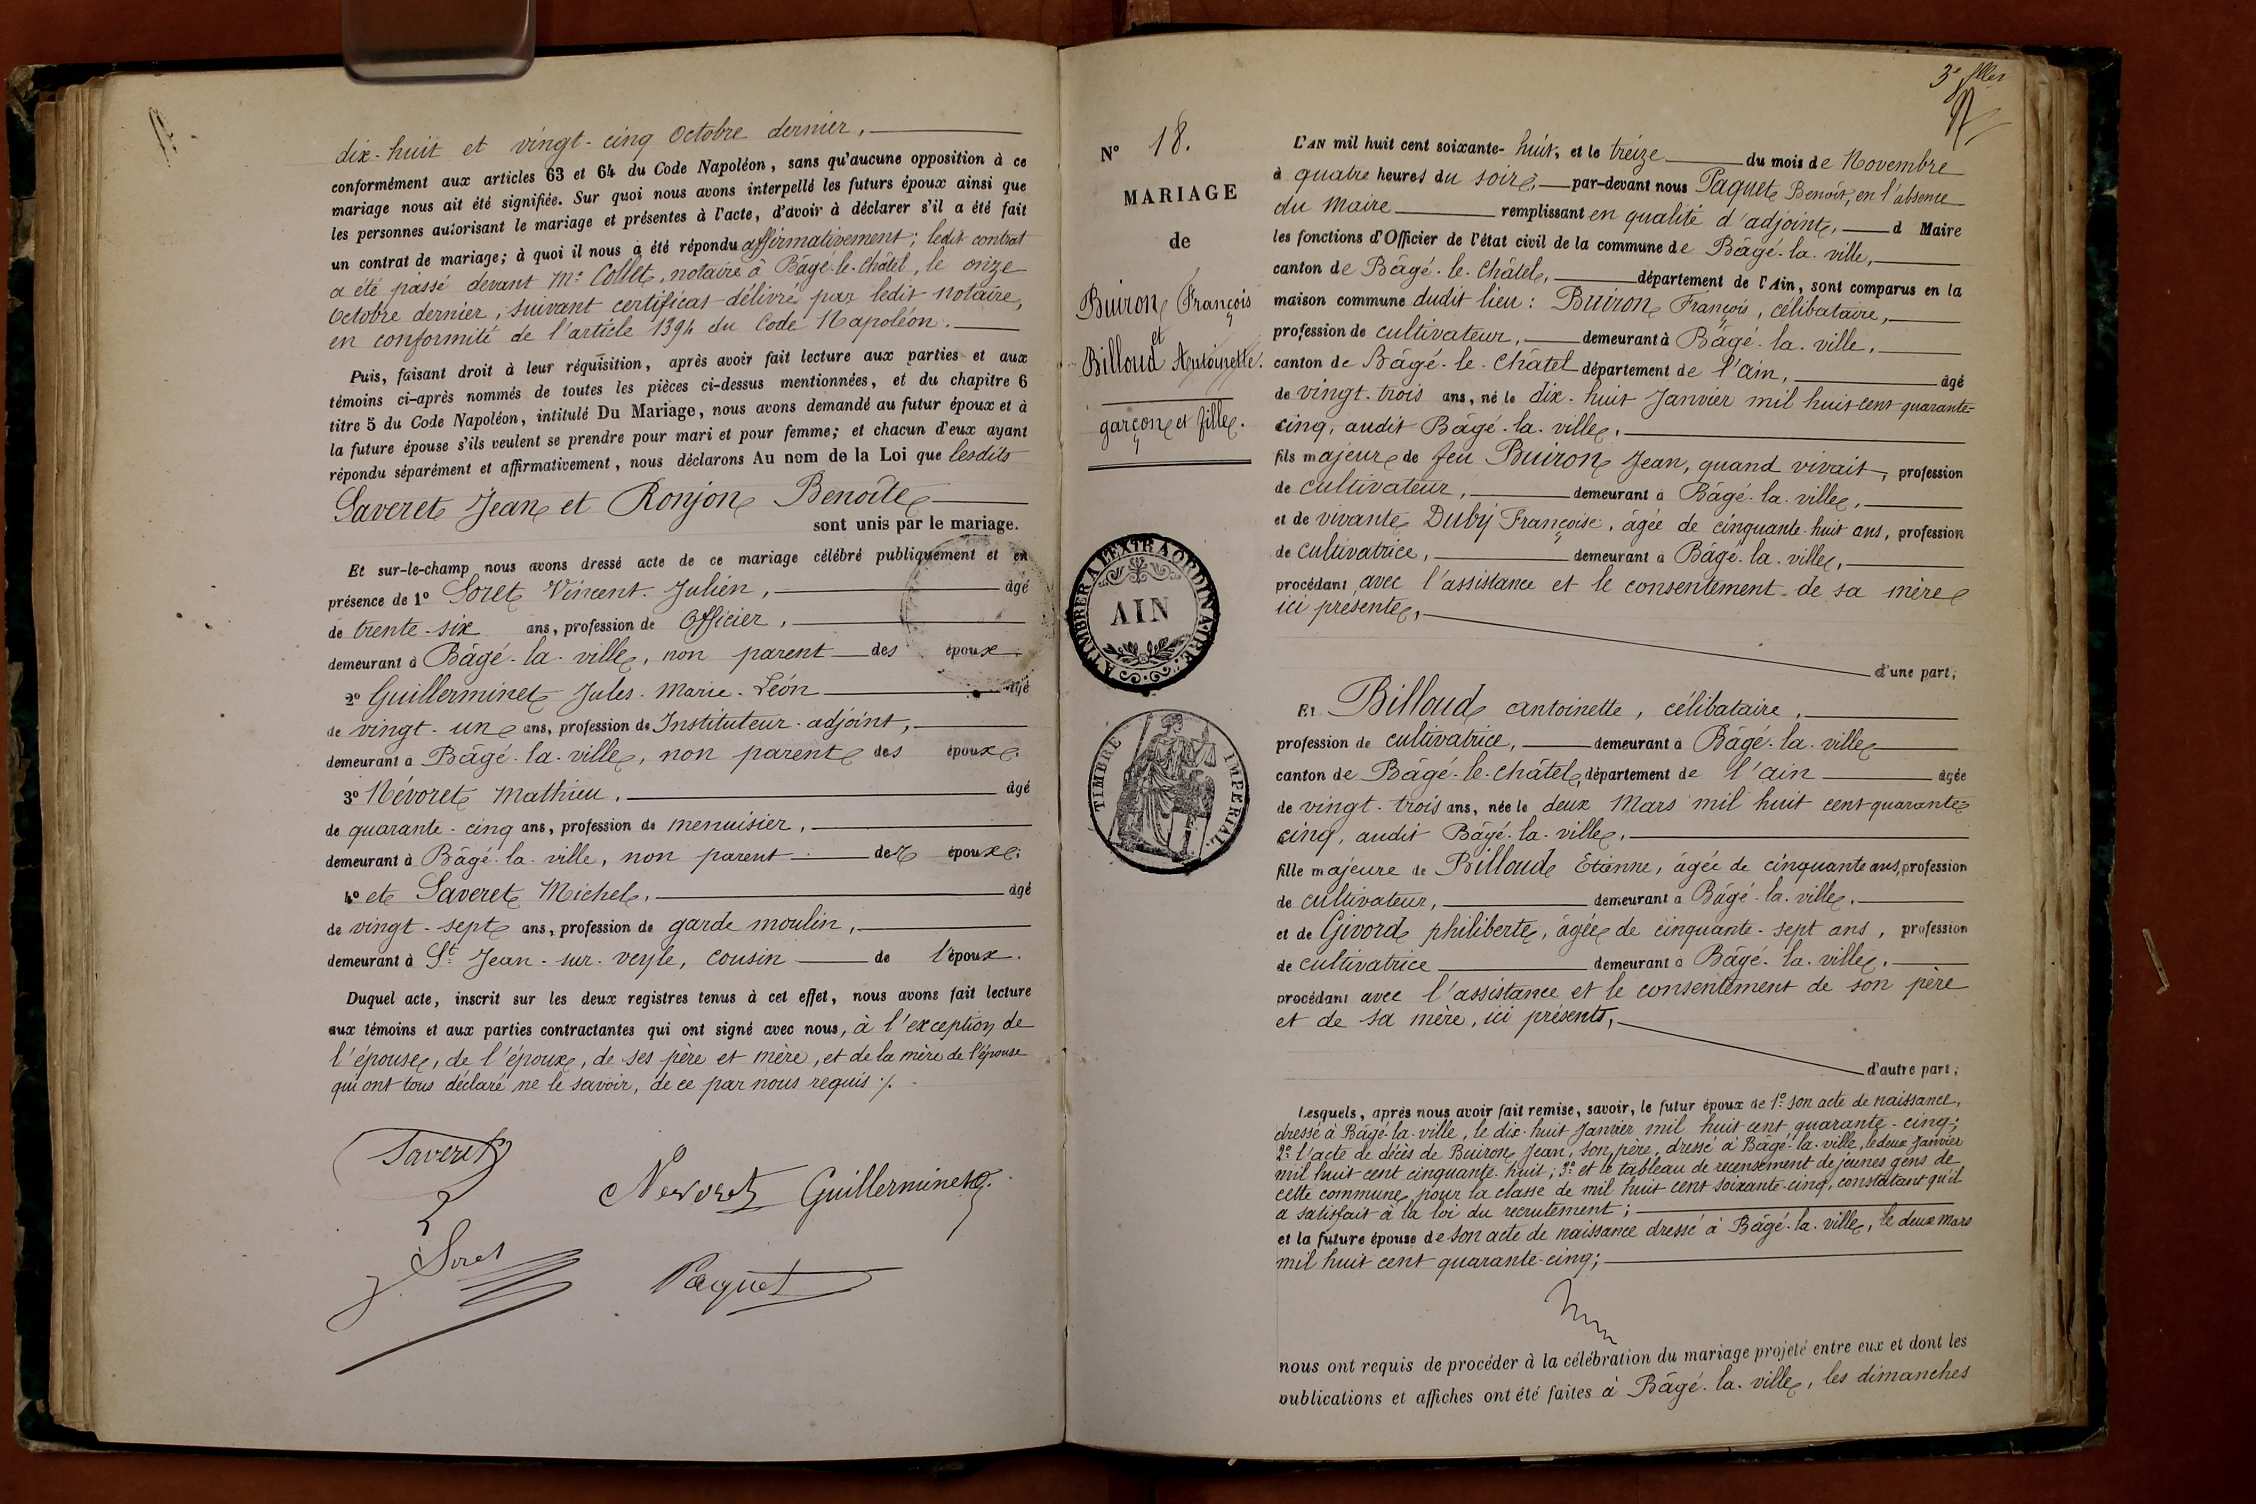 dix-huit et vingt-cinq Octobre dernier,
conformément aux articles 63 et 64 du Code Napoléon, sans qu'aucune opposition à ce
mariage nous ait été signifiée. Sur quoi nous avons interpellé les futurs époux ainsi que
les personnes autorisant le mariage et présentes à l'acte, d'avoir à déclarer s'il a été fait
un contrat de mariage; à quoi il nous a été répondu affirmativement; ledit contrat
a été passé devant Me Collet, notaire à Bâgé-le-Châtel, le onze
Octobre dernier, suivant certificat délivré par ledit notaire,
en conformité de l'article 1394 du Code Napoléon.
Puis, faisant droit à leur réquisition, après avoir fait lecture aux parties et aux
témoins ci-après nommés de toutes les pièces ci-dessus mentionnées, et du chapitre 6
titre 5 du Code Napoléon, intitulé Du Mariage, nous avons demandé au futur époux et à
la future épouse s'ils veulent se prendre pour mari et pour femme; et chacun d'eux ayant
répondu séparément et affirmativement, nous déclarons Au nom de la Loi que lesdits
Saveret Jean et Ronjon Benoîte
sont unis par le mariage.
Et sur-le-champ nous avons dressé acte de ce mariage célébré publiquement et en
présence de 1º Soret Vincent-Julien, âgé
de trente-six ans, profession de Officier,
demeurant à Bâgé-la-ville, non parent des époux.
2º Guillerminet Jules-Marie-Léon âgé
de vingt-un ans, profession de Instituteur-adjoint,
demeurant à Bâgé-la-ville, non parent des époux.
3º Névoret Mathieu. âgé
de quarante-cinq ans, profession de menuisier,
demeurant à Bâgé-la-ville, non parent des époux.
4º et Saveret Michel, âgé
de vingt-sept ans, profession de garde moulin,
demeurant à St Jean-sur-veyle, cousin de l'époux.
Duquel acte, inscrit sur les deux registres tenus à cet effet, nous avons fait lecture
aux témoins et aux parties contractantes qui ont signé avec nous, à l'exception de
l'épouse, de l'époux, de ses père et mère, et de la mère de l'épouse
qui ont tous déclaré ne le savoir, de ce par nous requis ./.
Saveret
Nevoret Guillerminet
J. Soret
Paquet
Nº 18.
MARIAGE
de
Buiron François
et
Billoud Antoinette.
garçon et fille.
A TIMBRER A L'EXTRAORDINAIRE
AIN
TIMBRE IMPERIAL
L'AN mil huit cent soixante-huit, et le treize du mois de Novembre
à quatre heures du soir, par-devant nous Paquet Benoît, en l'absence
du Maire remplissant en qualité d'adjoint, d Maire
les fonctions d'Officier de l'état civil de la commune de Bâgé-la-ville,
canton de Bâgé-le-Châtel, département de l'Ain, sont comparus en la
maison commune dudit lieu: Buiron François, célibataire,
profession de cultivateur, demeurant à Bâgé-la-ville,
canton de Bâgé-le-Châtel département de l'ain, âgé
de vingt-trois ans, né le dix-huit Janvier mil huit cent quarante-
cinq, audit Bâgé-la-ville,
fils majeur de feu Buiron Jean, quand vivait, profession
de cultivateur, demeurant à Bâgé-la-ville,
et de vivante Duby Françoise, âgée de cinquante-huit ans, profession
de cultivatrice, demeurant à Bâgé-la-ville,
procédant avec l'assistance et le consentement de sa mère
ici présente,
d'une part;
Et Billoud antoinette, célibataire,
profession de cultivatrice, demeurant à Bâgé-la-ville
canton de Bâgé-le-châtel, département de l'ain âgée
de vingt-trois ans, née le deux Mars mil huit cent quarante
cinq, audit Bâgé-la-ville,
fille majeure de Billoud Etienne, âgée de cinquante ans, profession
de cultivateur, demeurant à Bâgé-la-ville,
et de Givord philiberte, âgée de cinquante-sept ans, profession
de cultivatrice demeurant à Bâgé-la-ville,
procédant avec l'assistance et le consentement de son père
et de sa mère, ici présents,
d'autre part;
Lesquels, après nous avoir fait remise, savoir, le futur époux de 1º son acte de naissance,
dressé à Bâgé-la-ville, le dix-huit Janvier mil huit cent quarante-cinq;
2º l'acte de décès de Buiron Jean, son père, dressé à Bâgé-la-ville, le deux Janvier
mil huit cent cinquante-huit; 3º et le tableau de recensement de jeunes gens de
cette commune, pour la classe de mil huit cent soixante-cinq, constatant qu'il
a satisfait à la loi du recrutement;
et la future épouse de son acte de naissance dressé à Bâgé-la-ville, le deux Mars
mil huit cent quarante-cinq;
nous ont requis de procéder à la célébration du mariage projeté entre eux et dont les
publications et affiches ont été faites à Bâgé-la-ville, les dimanches